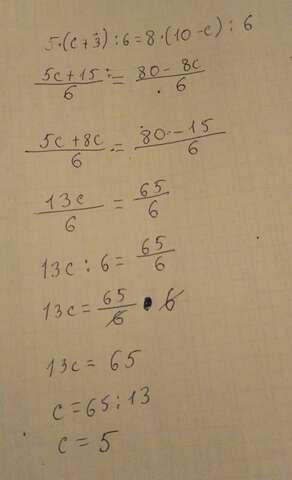 5·(c+3):6=8·(10-c):6
5c+15/6 = 80-8c/6
5c+8c/6 = 80-15/6
13c/6 = 65/6
13c:6=65/6
13c=65/6·6
13c=65
c=65:13
c=5